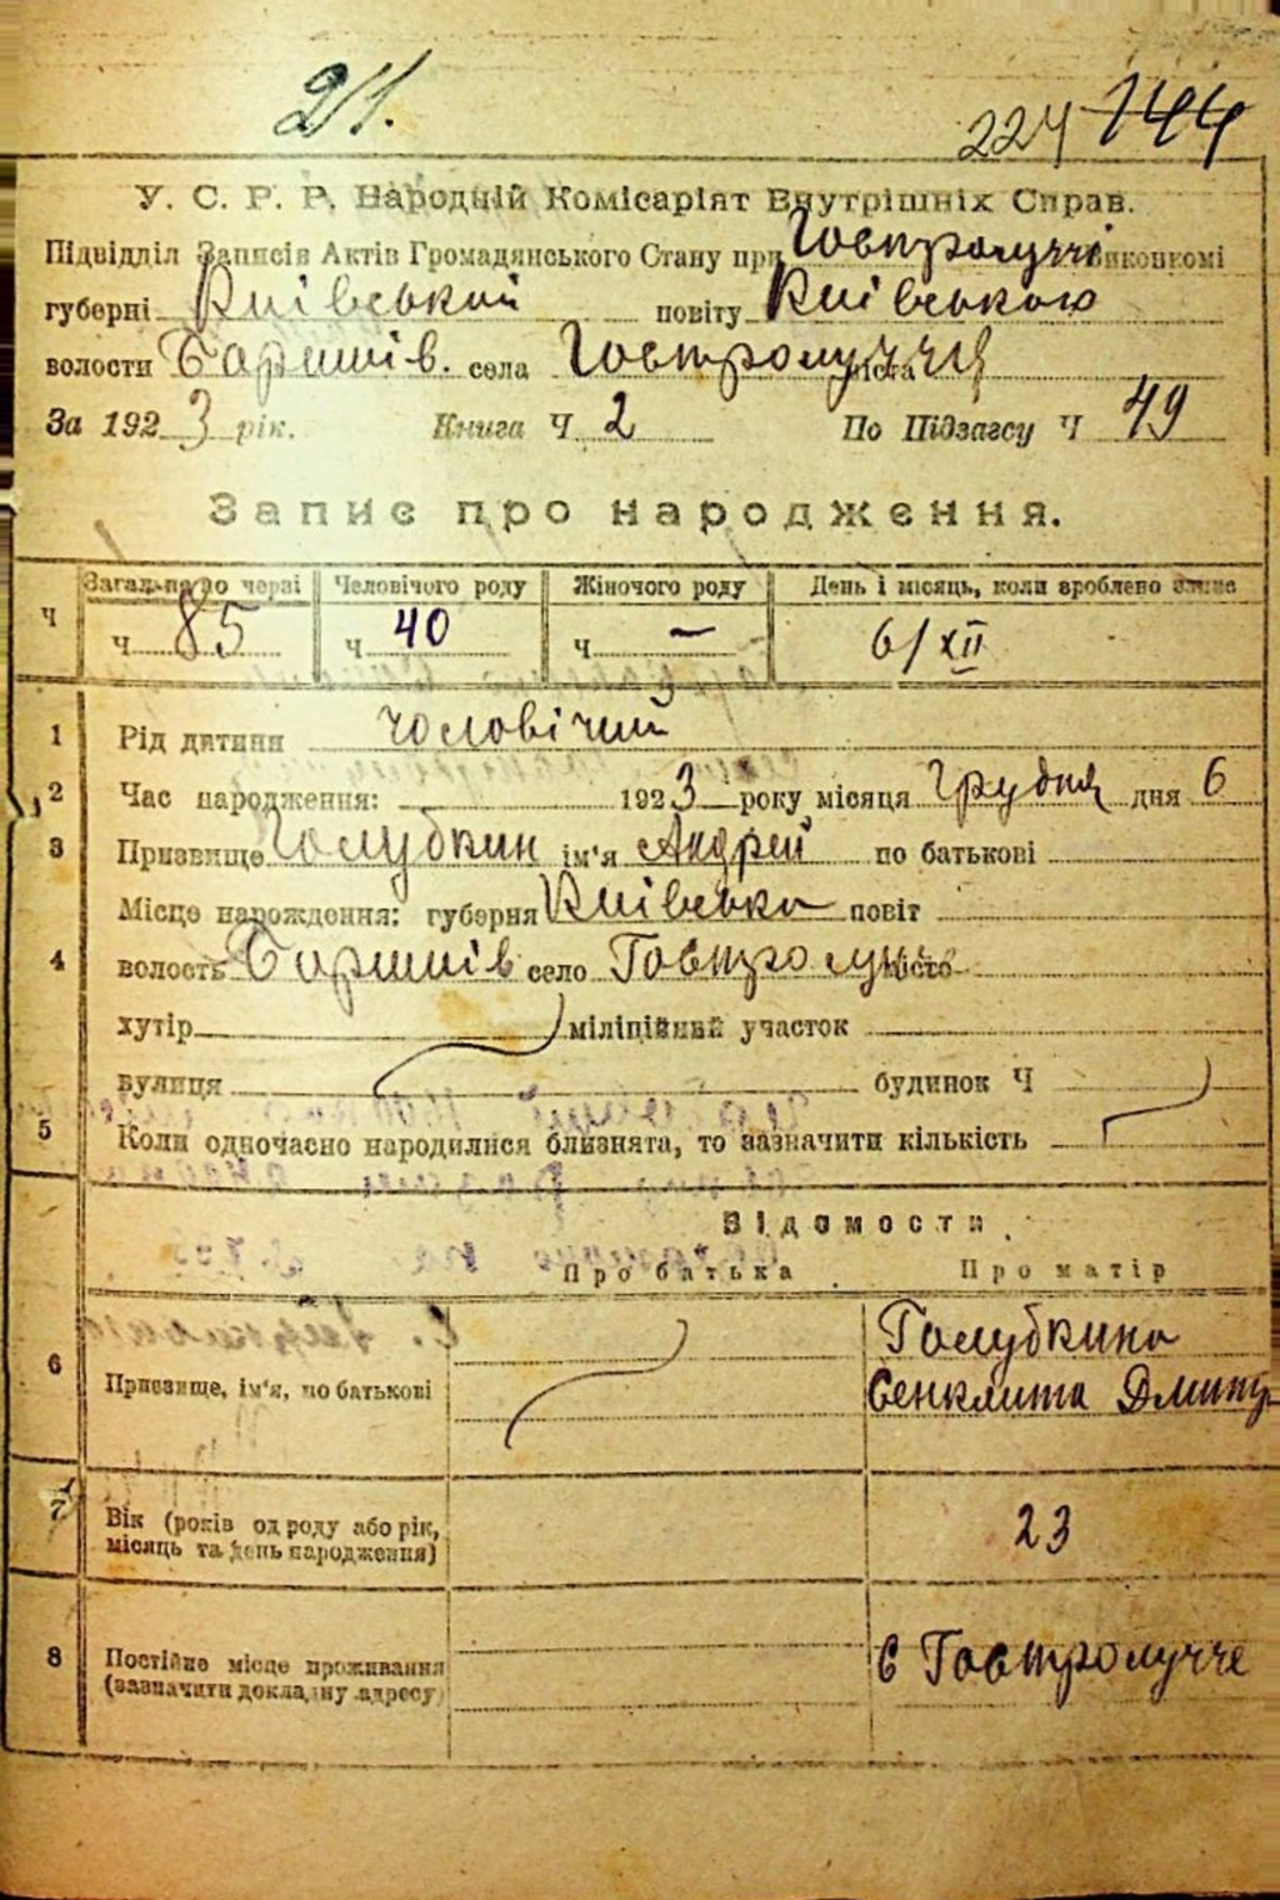 21.
224 144
У. С. Р. Р. Народній Комісаріят Внутрішніх Справ.
Підвідділ Записів Актів Громадянського Стану при Гостролуччі виконкомі
губерні Київській повіту Київською
волости Баришів. села Гостролуччя міста
За 1923 рік. Книга Ч 2 По Підзагсу Ч 49
Запис про народження.
Ч Загальна по черзі Человічого роду Жіночого роду День і місяць, коли зроблено запис
Ч 85 Ч 40 Ч — 6/XII
1 Рід дитини чоловічий
2 Час народження: 1923 року місяця Грудня дня 6
3 Призвище Голубкин ім'я Андрей по батькові
Місце народження: губерня Київська повіт
4 волость Баришів село Гостролуччє місто
хутір міліційний участок
вулиця будинок Ч
5 Коли одночасно народилися близнята, то зазначити кількість
Відомости
Про батька Про матір
6 Призвище, ім'я, по батькові Голубкина
Сенклита Дмитр
7 Вік (років од роду або рік, місяць та день народження) 23
8 Постійне місце проживання (зазначити докладну адресу) с Гостролучче